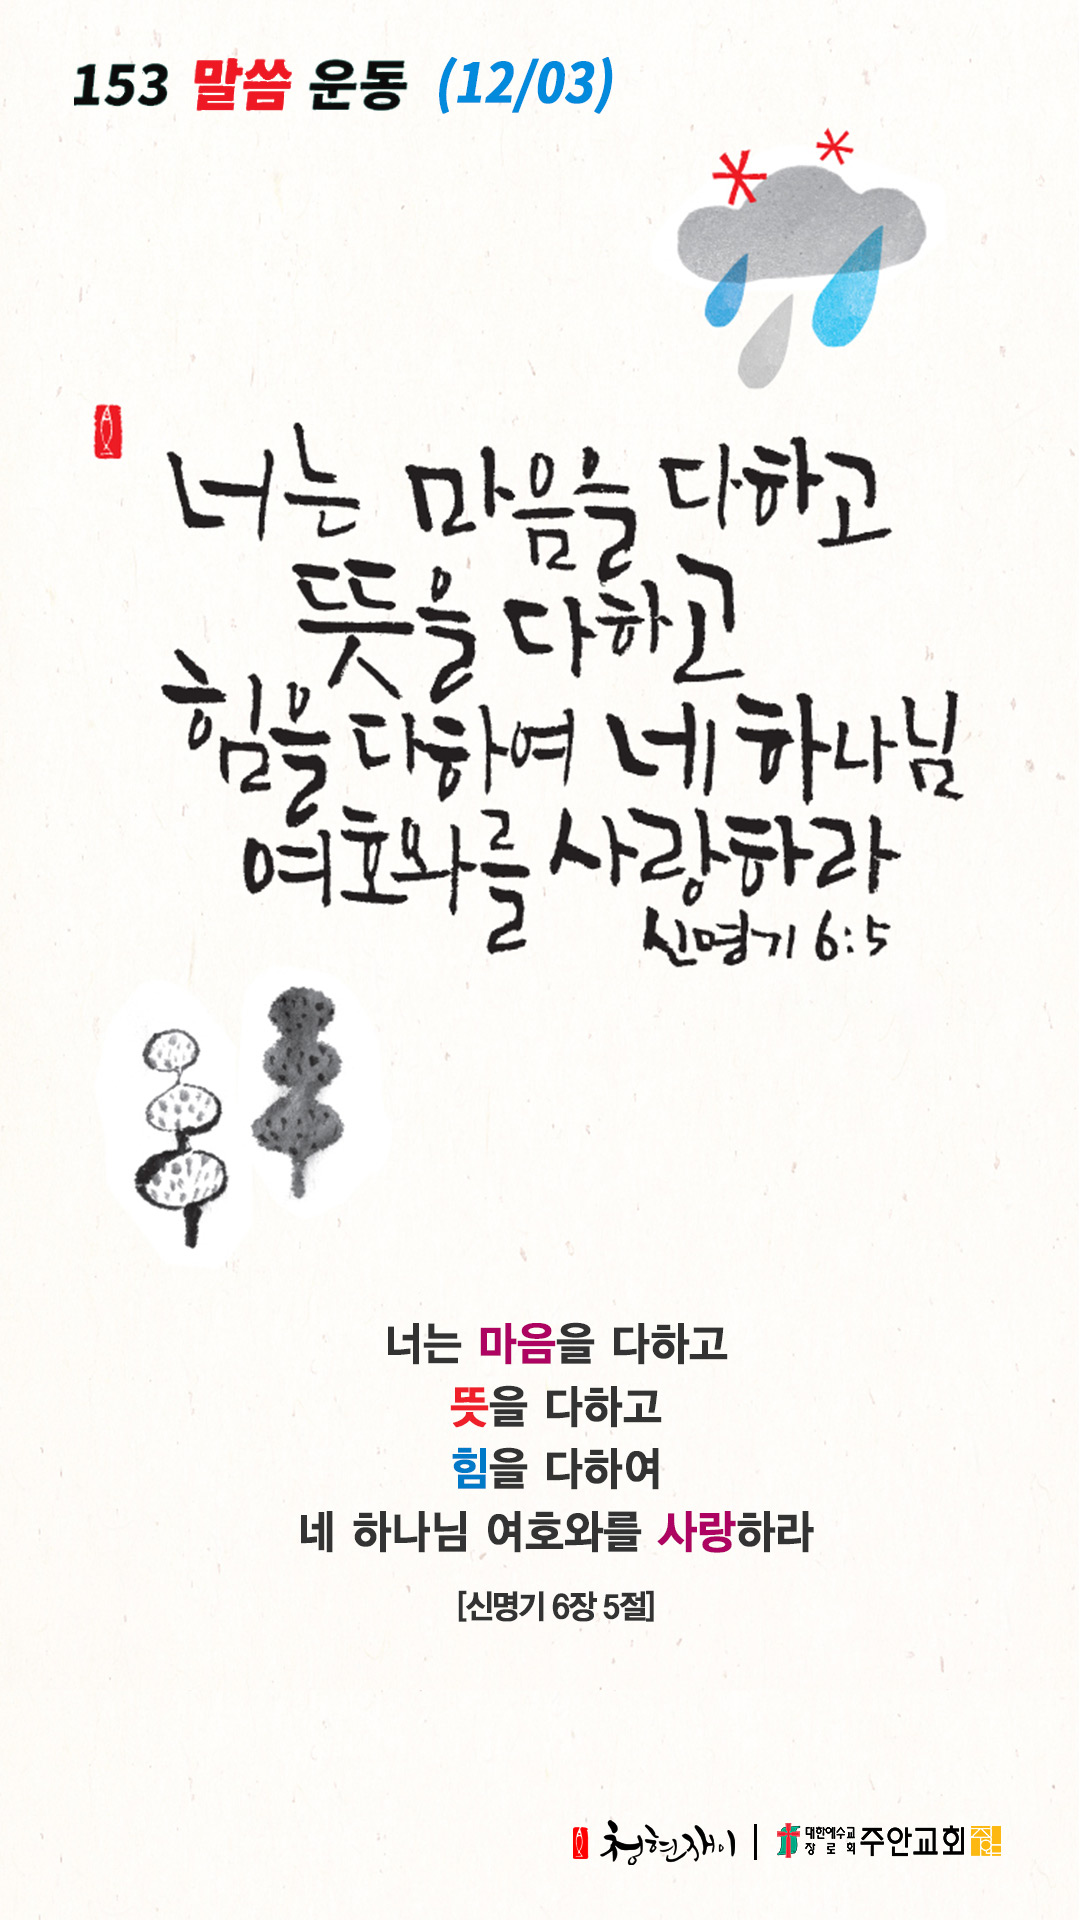 153 말씀 운동 (12/03)
너는 마음을 다하고
뜻을 다하고
힘을 다하여 네 하나님
여호와를 사랑하라
신명기 6:5
너는 마음을 다하고
뜻을 다하고
힘을 다하여
네 하나님 여호와를 사랑하라
[신명기 6장 5절]
청현재이 | 대한예수교장로회 주안교회